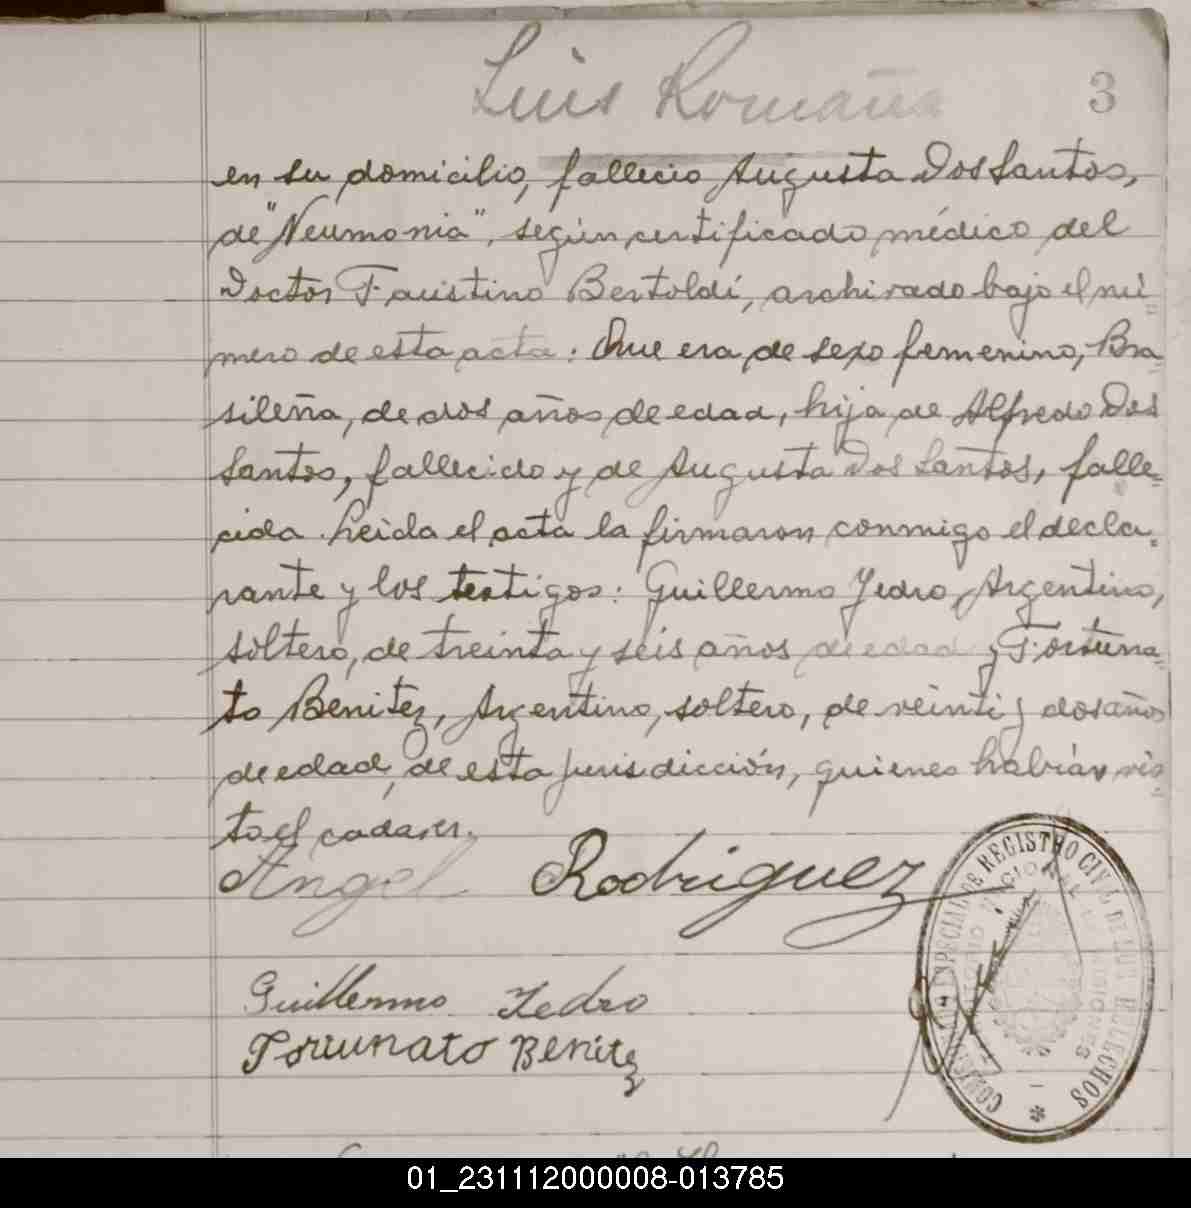 Luis Romaña
3
en su domicilio, fallecio Augusta Dos Santos,
de "Neumonia", según certificado médico del
Doctor Faustino Bertoldi, archivado bajo el nú=
mero de esta acta: Que era de sexo femenino, Bra=
sileña, de dos años de edad, hija de Alfredo Dos
Santos, fallecido y de Augusta Dos Santos, falle=
cida. Leida el acta la firmaron conmigo el decla=
rante y los testigos: Guillermo Yedro, Argentino,
soltero, de treinta y seis años de edad y Fortuna=
to Benitez, Argentino, soltero, de veinti y dos años
de edad, de esta jurisdicción, quienes habían vis=
to el cadaver.
Angel Rodriguez
Guillermo Yedro
Fortunato Benitez
ESPECIAL DE REGISTRO CIVIL DE
MISIONES
01_231112000008-013785